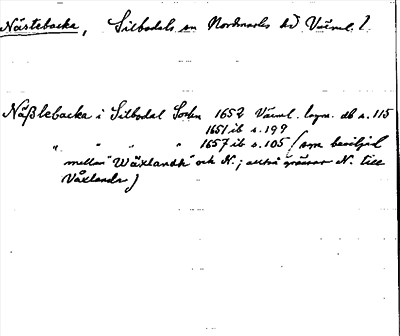 Nästebacka, Silbodals sn Nordmarks hd Värml. l.
Näßlebacka i Silbodal Sochn 1652 Värml. lagm. db s. 115
1651 ib s. 199
" " " " 1657 ib s. 105 (som
mellan "Wäxlandh" och N.; alltså gränsar N. till
Växlanda)